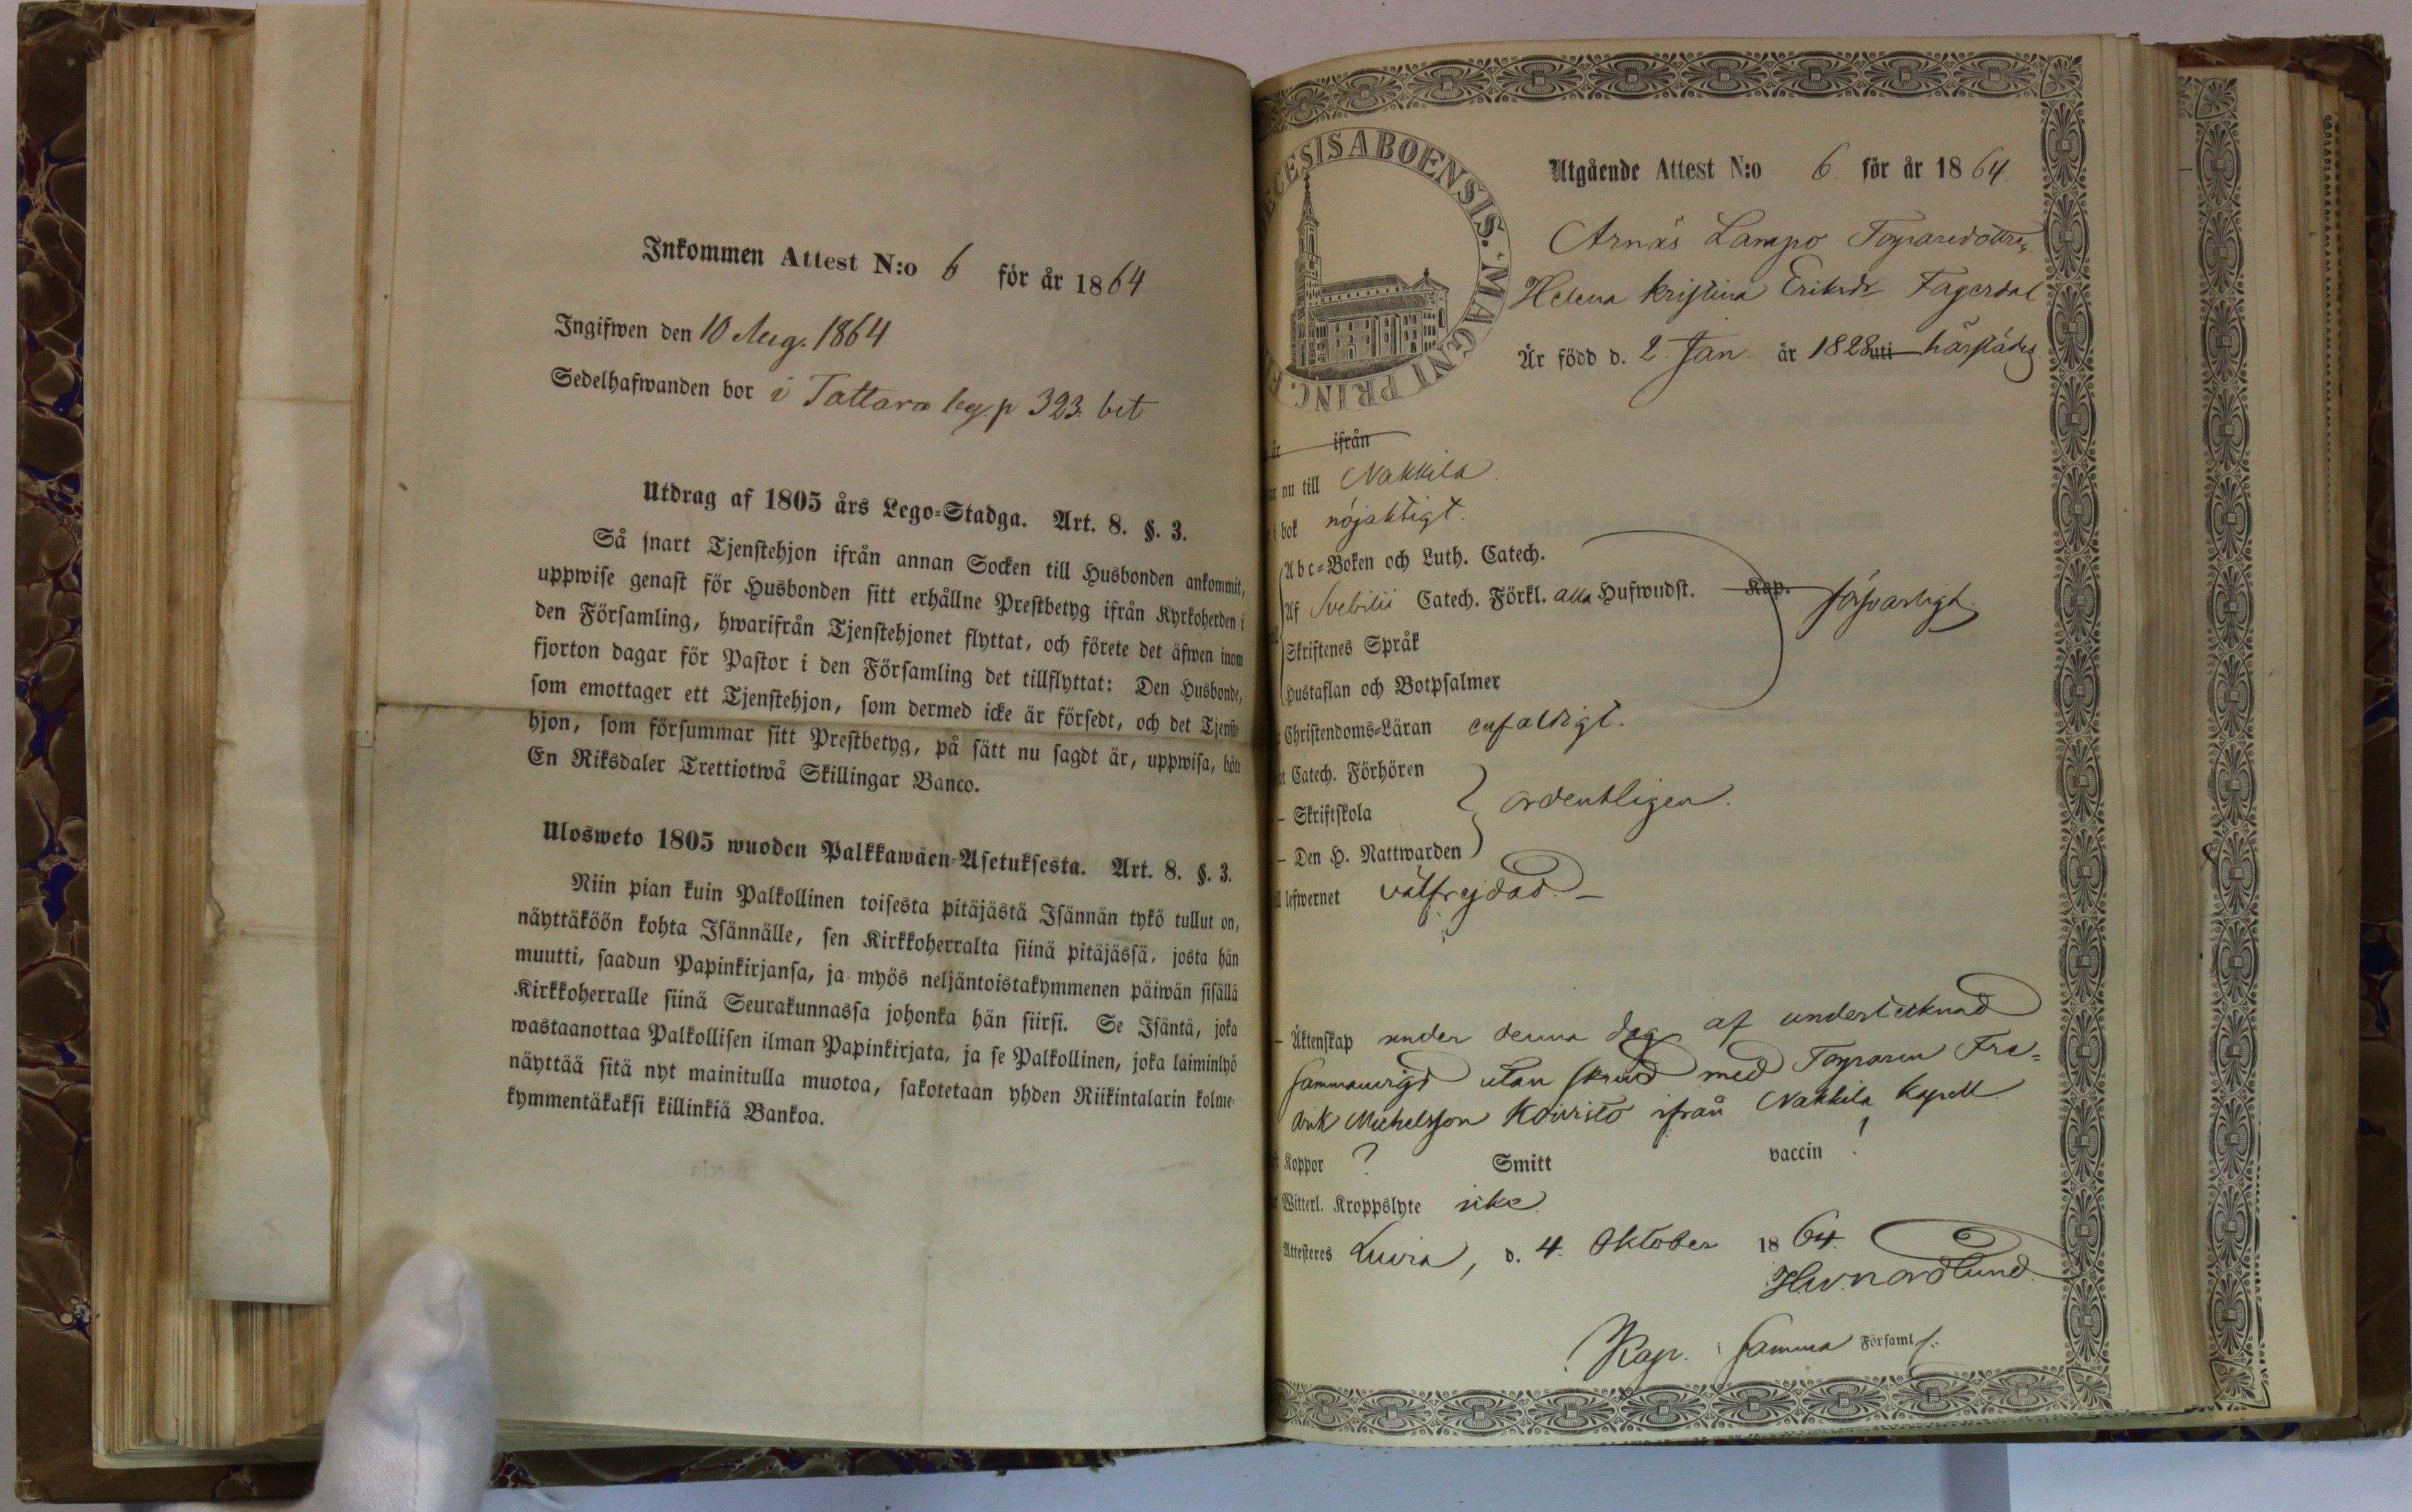 Inkommen Attest N:o 6 för år 1864
Ingifwen den 10 Aug. 1864
Sedelhafwanden bor i Tattara leg. p 323. bet
Utdrag af 1805 års Lego-Stadga. Art. 8. §. 3.
Så snart Tjenstehjon ifrån annan Socken till Husbonden ankommit,
uppwise genast för Husbonden sitt erhållne Prestbetyg ifrån Kyrkoherden i
den Församling, hwarifrån Tjenstehjonet flyttat, och förete det äfwen inom
fjorton dagar för Pastor i den Församling det tillflyttat: Den Husbonde,
som emottager ett Tjenstehjon, som dermed icke är försedt, och det Tjenste-
hjon, som försummar sitt Prestbetyg, på sätt nu sagdt är, uppwisa, böte
En Riksdaler Trettiotwå Skillingar Banco.
Ulosweto 1805 wuoden Palkkawäen-Asetuksesta. Art. 8. §. 3.
Niin pian kuin Palkollinen toisesta pitäjästä Isännän tykö tullut on,
näyttäköön kohta Isännälle, sen Kirkkoherralta siinä pitäjässä, josta hän
muutti, saadun Papinkirjansa, ja myös neljäntoistakymmenen päiwän sisällä
Kirkkoherralle siinä Seurakunnassa johonka hän siirsi. Se Isäntä, joka
wastaanottaa Palkollisen ilman Papinkirjata, ja se Palkollinen, joka laiminlyö
näyttää sitä nyt mainitulla muotoa, sakotetaan yhden Riikintalarin kolme-
kymmentäkaksi killinkiä Bankoa.
ECESIS ABOENSIS. MAGNI PRINC. F
Utgående Attest N:o 6. för år 1864.
Arnäs Lampo Torparedottren
Helena Kristina Eriksdr Fagerdal
Är född d. 2 Jan. år 1828 uti härstädes.
år ifrån
nu till Nakkila.
i bok nöjaktigt.
Abc-Boken och Luth. Catech.
Af Svebilii Catech. Förkl. alla Hufwudst. Kap. försvarligt
Skriftenes Språk
Hustaflan och Botpsalmer
Christendoms-Läran enfaldigt.
Catech. Förhören
– Skriftskola ordentligen.
– Den H. Nattwarden
lefwernet välfrejdad. –
– Äktenskap under denna dag af undertecknad
sammanvigd utan skrud med Torparen Fre=
drik Michelsson Koivisto ifrån Nakkila Kapell.
Koppor ? Smitt vaccin !
Witterl. Kroppslyte icke.
Attesteres Luvia, d. 4. Oktober 1864.
Hr. Nordlund.
Kap. i samma Församl.